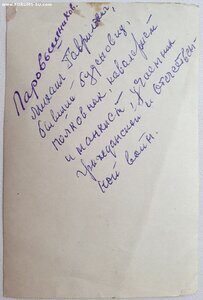 www.FORUMS-SU.com
Паровышников,
Михаил Гаврилович,
бывший буденовец,
полковник, кавалерист
и танкист, участник
гражданской и отечествен-
ной войн.